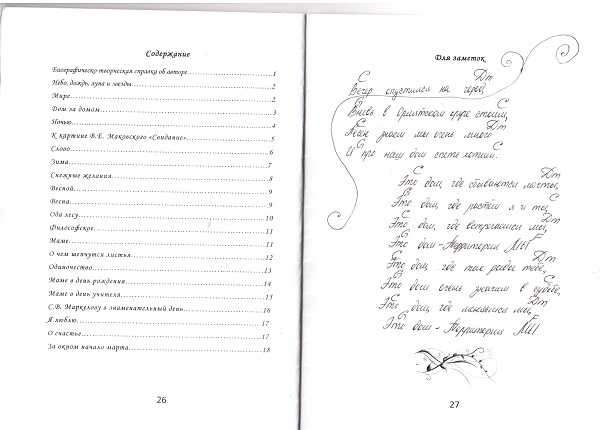 Содержание
Биографическо-творческая справка об авторе……1
Небо, дождь, луна и звезды……2
Мире……2
Дом за домом……3
Ночью……4
К картине В.Е. Маковского «Свидание»……5
Слово……6
Зима……7
Снежные желания……8
Весной……9
Весна……9
Ода лесу……10
Философское……11
Маме……11
О чем шепчутся листья……12
Одиночество……13
Маме в день рождения……14
Маме в день учителя……15
С.В. Маркелову в знаменательный день……16
Я люблю……17
О счастье……17
За окном начало марта……18
26
Для заметок
C Dm
Вечер опустился на город,
C
Вновь в приятном круге стоим,
C Dm
Песен знаем мы очень много
G C
И про наш дом спеть хотим.
C Dm
Это дом, где сбываются мечты,
G C
Это дом, где растём я и ты,
C Dm
Это дом, где встречаемся мы,
G F
Это дом – Территория МЫ.
C Dm
Это дом, где так рады тебе,
G C
Это дом очень значим в судьбе,
C Dm
Это дом, где меняемся мы,
G F
Это дом – Территория МЫ.
27